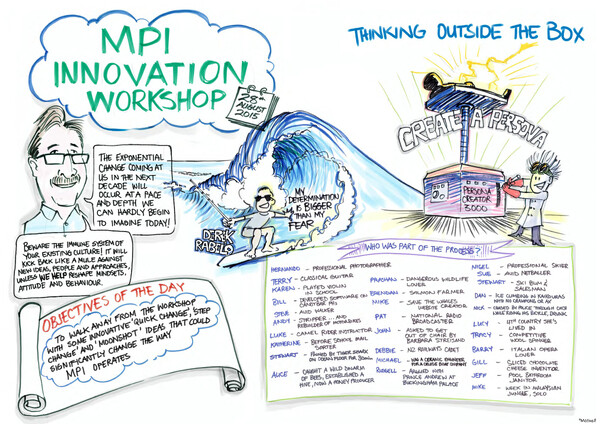 MPI
INNOVATION
WORKSHOP
28th
AUGUST
2015
THINKING OUTSIDE THE BOX
THE EXPONENTIAL
CHANGE COMING AT
US IN THE NEXT
DECADE WILL
OCCUR AT A PACE
AND DEPTH WE
CAN HARDLY BEGIN
TO IMAGINE TODAY!
BEWARE THE IMMUNE SYSTEM OF
YOUR EXISTING CULTURE! IT WILL
KICK BACK LIKE A MULE AGAINST
NEW IDEAS, PEOPLE AND APPROACHES,
UNLESS WE HELP RESHAPE MINDSETS,
ATTITUDE AND BEHAVIOUR.
DEREK
RABELO
MY
DETERMINATION
IS BIGGER
THAN MY
FEAR
CREATE A PERSONA
PERSONA
CREATOR
3000
OBJECTIVES OF THE DAY
TO WALK AWAY FROM THE WORKSHOP
WITH SOME INNOVATIVE 'QUICK CHANGE', 'STEP
CHANGE' AND 'MOONSHOT' IDEAS THAT COULD
SIGNIFICANTLY CHANGE THE WAY
MPI OPERATES
WHO WAS PART OF THE PROCESS?
HERNANDO - PROFESSIONAL PHOTOGRAPHER
TERRY - CLASSICAL GUITAR
KAREN - PLAYED VIOLIN
IN SCHOOL
BILL - DEVELOPED SOFTWARE ON
SEB - AVID HIKER
ANDY - STRIPPER... AND
REBUILDER OF MOTORBIKES
LUKE - CAMEL RIDE INSTRUCTOR
KATHERINE - BEFORE SCHOOL MAIL
SORTER
STEWART -
ALICE - CAUGHT A WILD SWARM
OF BEES, ESTABLISHED A
HIVE, NOW A HONEY PRODUCER
- DANGEROUS WILDLIFE
LOVER
BRENDAN - SALMON FARMER
MIKE - SAVE THE WHALES
WEBSITE CREATOR
PAT - NATIONAL RADIO
BROADCASTER
JOHN - ASKED TO GET
OUT OF CHAIR BY
BARBARA STREISAND
DEBBIE - NZ RAILWAYS CADET
MICHAEL - WON A CERAMIC ENGINEERS
RUSSELL - ARRIVED WITH
PRINCE ANDREW AT
BUCKINGHAM PALACE
NIGEL - PROFESSIONAL SKIER
SUE - AVID NETBALLER
STEWART - SKI BUM &
SALESMAN
DAN - ICE CLIMBING IN KAIKOURAS
WITH NO CRAMPONS OR AXE
NICK - CHASED BY POLICE THROUGH CORN
MAZE RIDING HIS BICYCLE, DRUNK
LUCY - 11th COUNTRY SHE'S
LIVED IN
TRACY - COMPETITIVE
WOOL SPINNER
BARRY - ITALIAN OPERA
LOVER
GILL - SLICED CHOCOLATE
CHEESE INVENTOR
JEFF - POOL BATHROOM
JANITOR
MIKE - WEEK IN MALAYSIAN
JUNGLE, SOLO